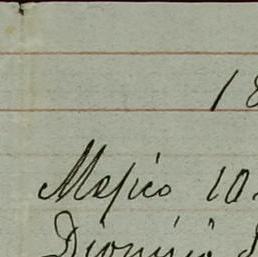 18
Mejico 10
Dionisio